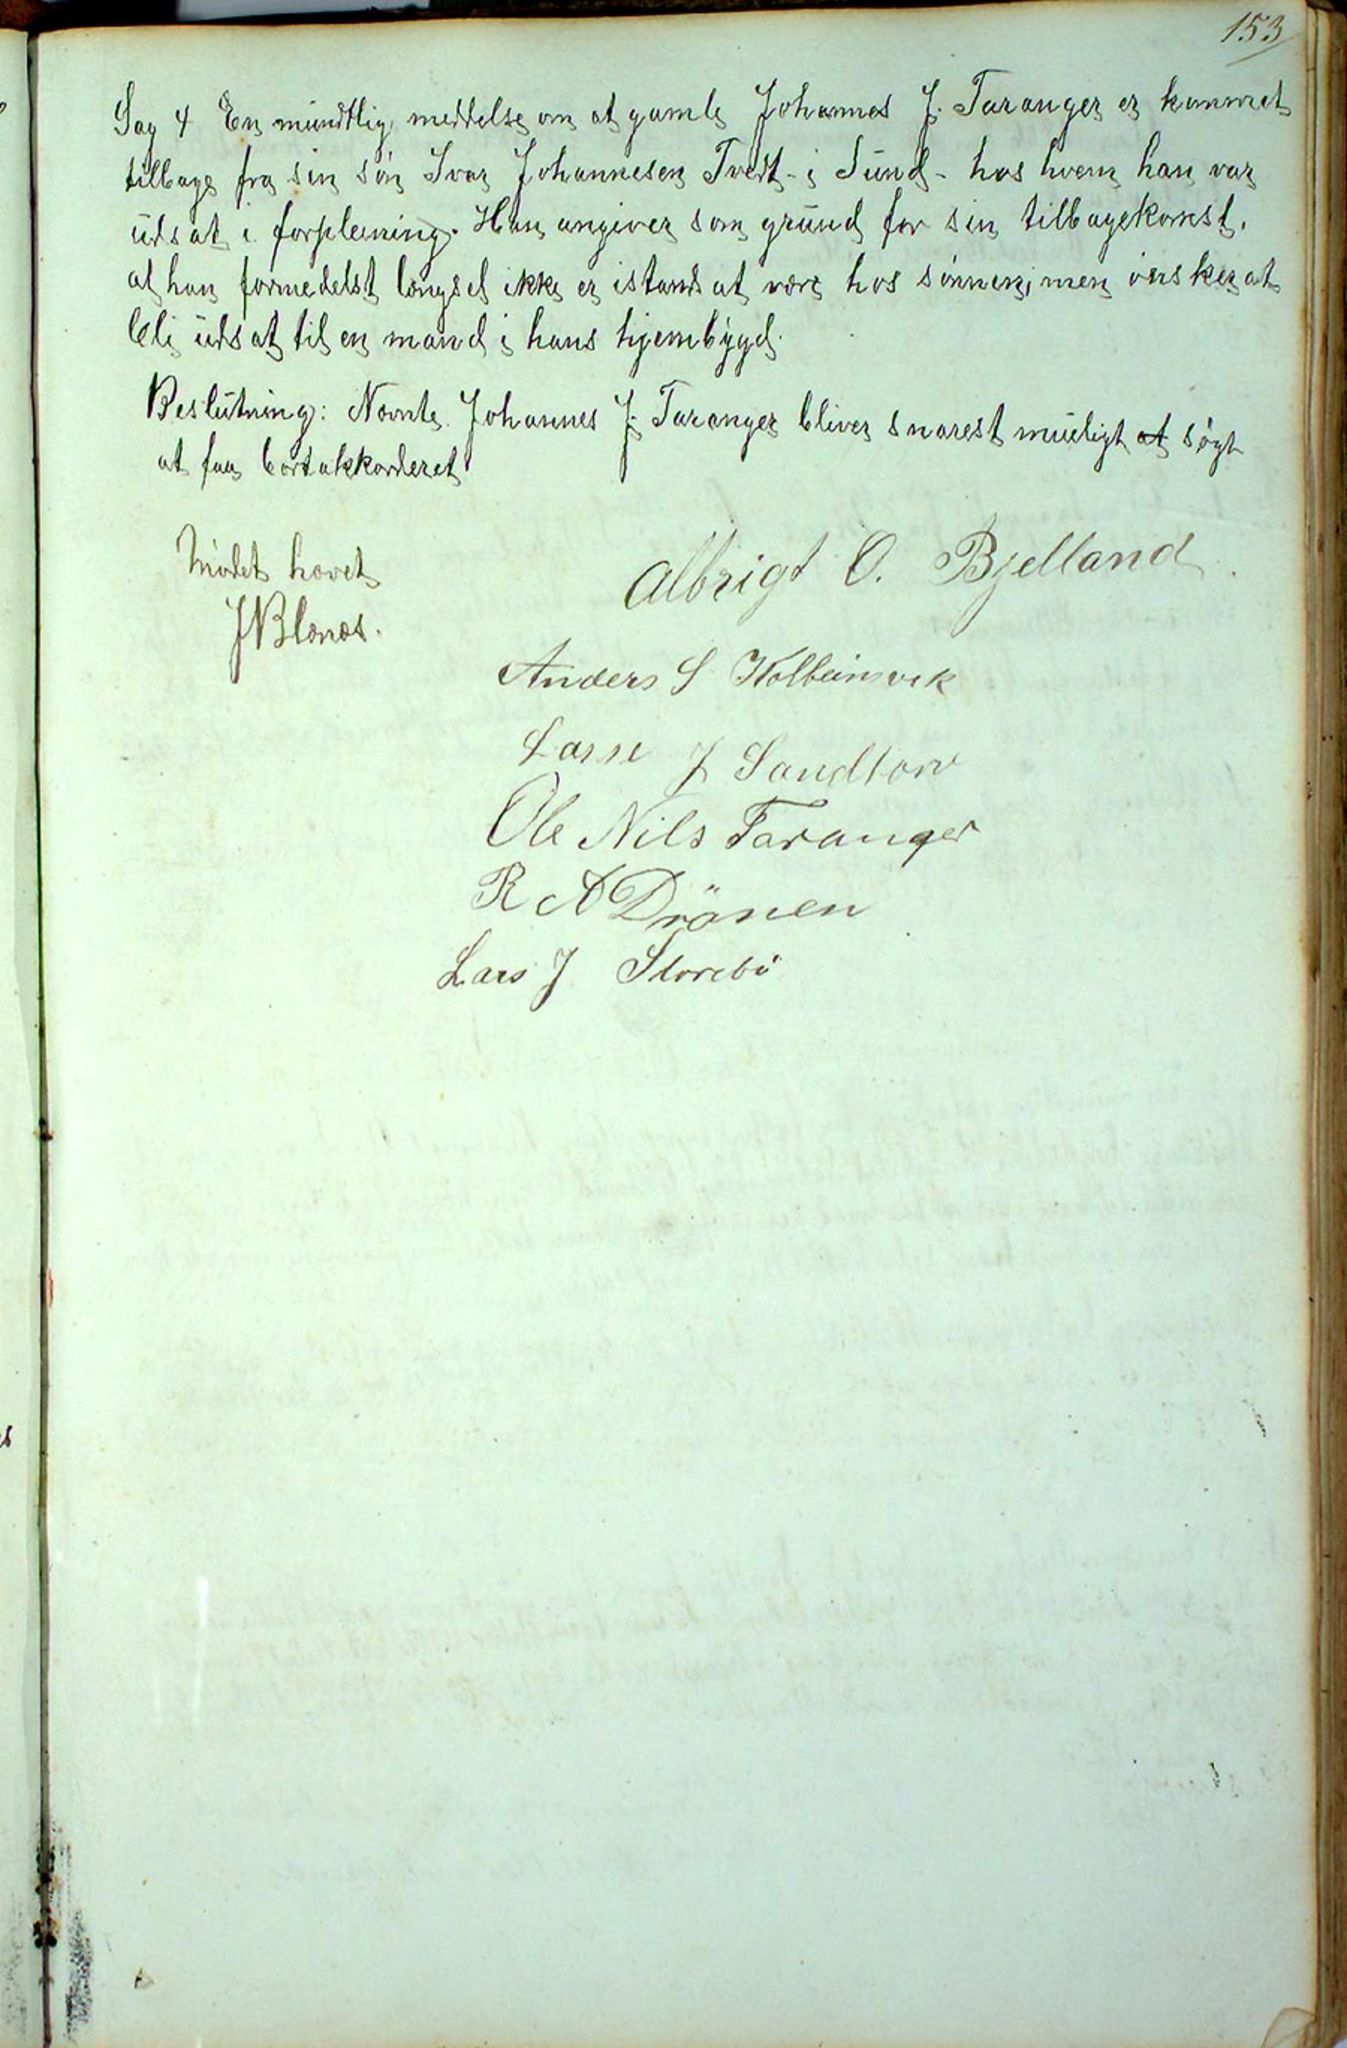 153
Sag 4 En mundtlig meddelse om at gamle Johannes J. Taranger er kommet
tilbage fra sin søn Ivar Johannesen Tvedt - i Sund - hos hvem han var
udsat i forpleining. Han angiver som grund for sin tilbagekomst,
at han formedelst længsel ikke er istand at være hos sønnen, men ønsker at
bli udsat til en mand i hans hjembygd.
Beslutning: Nævnte Johannes J. Taranger bliver snarest mueligt at søgt
at faa bortakkorderet
Mødet hævet
J Blænæs.
Albrigt O. Bjelland
Anders S Kolbeinsvik
Lasse J Sandtorv
Ole Nils Taranger
R A Drönen
Lars J Storebø